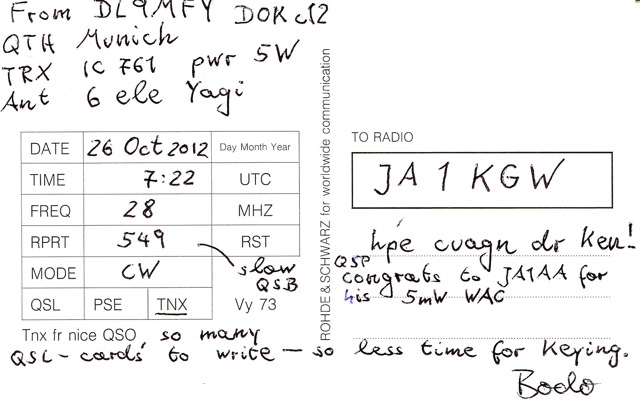 From DL9MFY DOK C12
QTH Munich
TRX IC 761 pwr 5W
Ant 6 ele Yagi
DATE 26 Oct 2012 Day Month Year
TIME 7:22 UTC
FREQ 28 MHZ
RPRT 549 RST
slow
QSB
MODE CW
QSL PSE TNX Vy 73
Tnx fr nice QSO so many
QSL-cards to write - so less time for Keying.
Bodo
ROHDE & SCHWARZ for worldwide communication
TO RADIO
JA1KGW
hpe cuagn dr Ken!
QSP
congrats to JA1AA for
his 5mW WAC